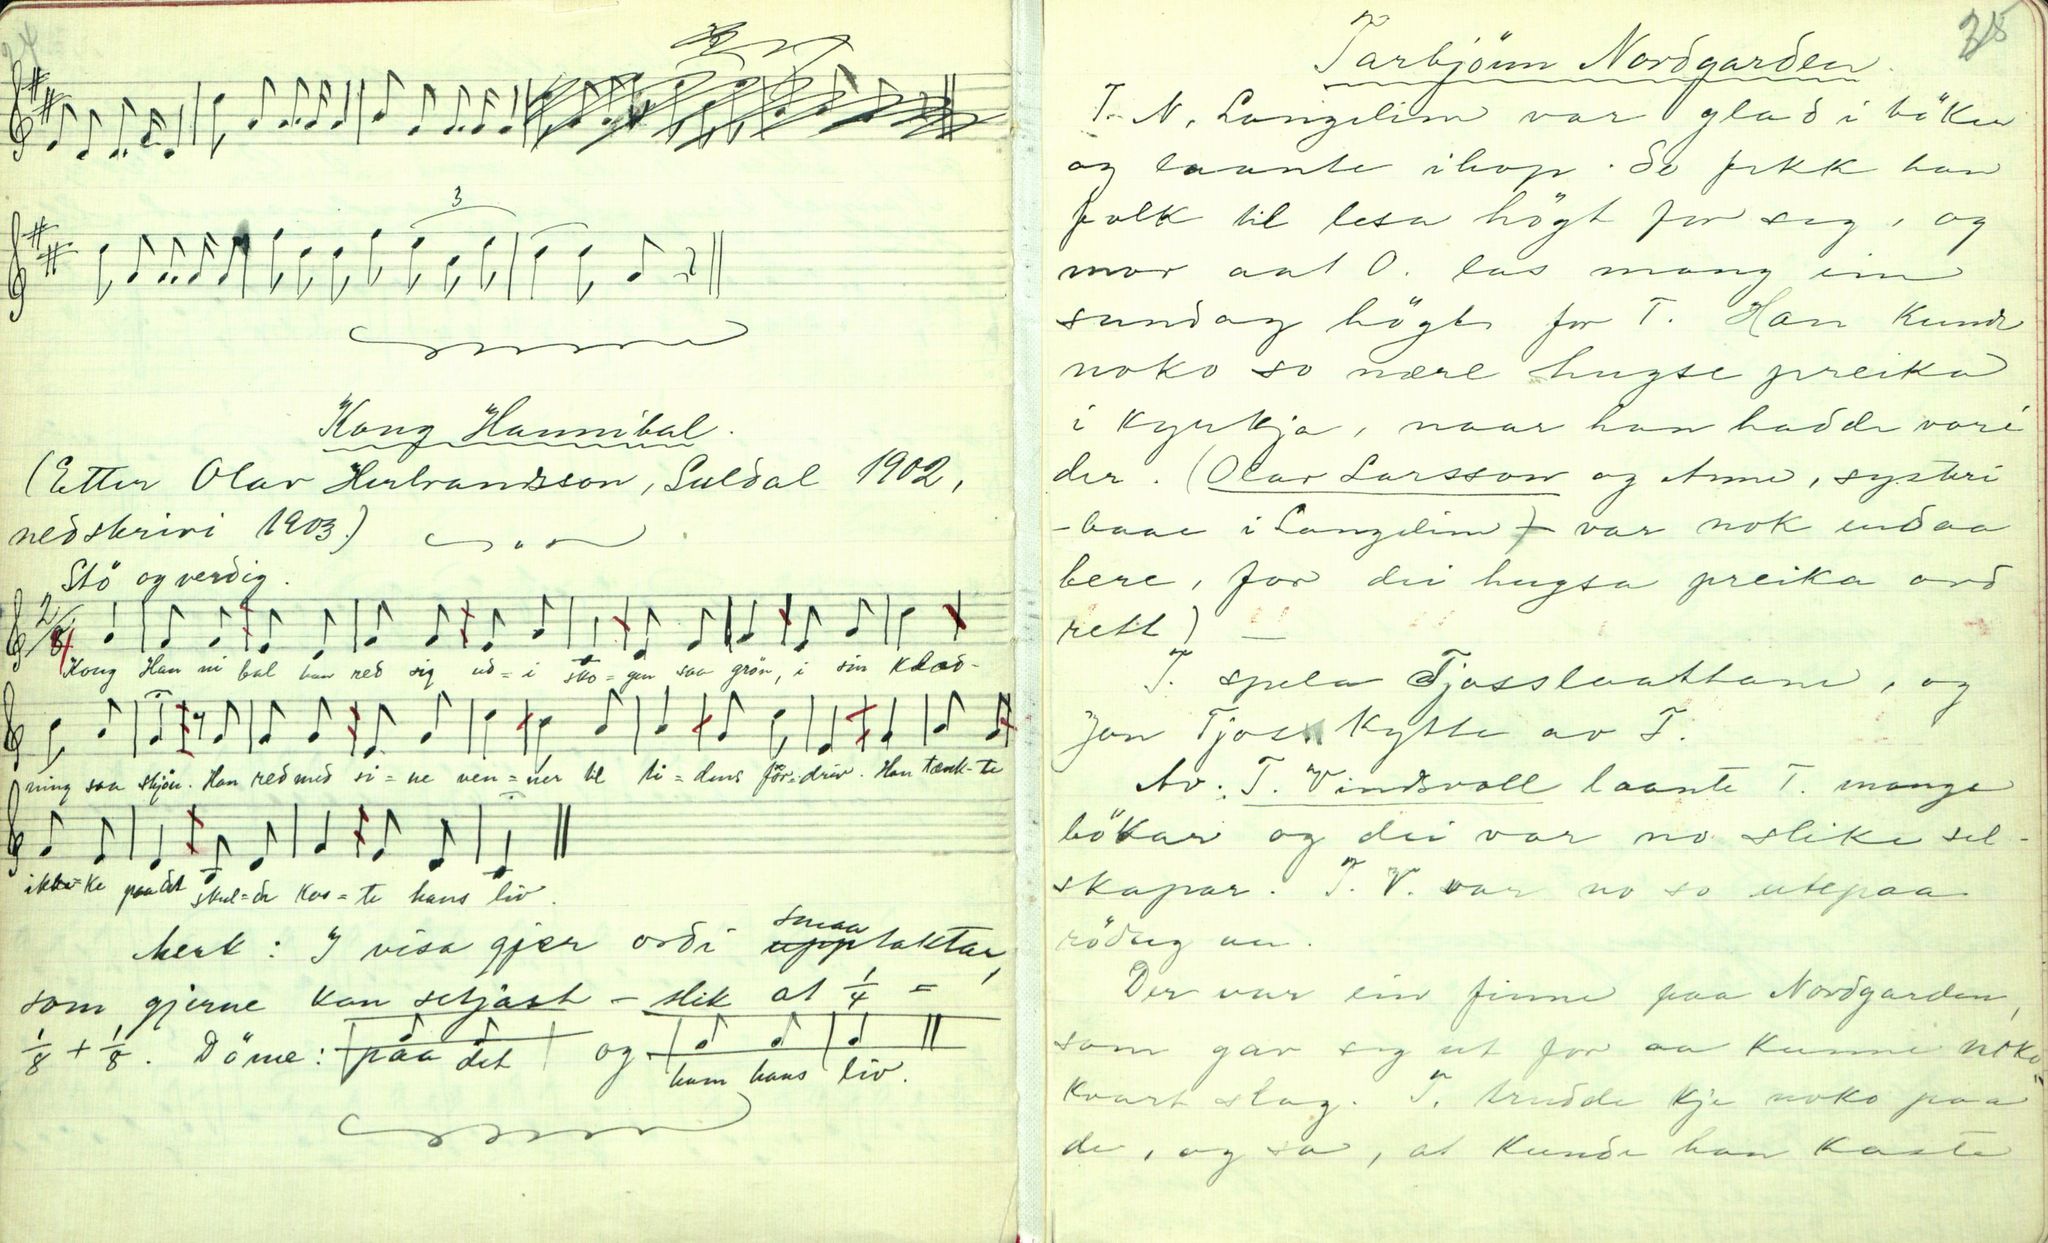 24
3
Kong Hannibal.
(Etter Olav Herbrandsson, Suldal 1902,
nedskrivi 1903.)
Stö og verdig.
2/4
Kong Han ni bal han red sig ud = i sko = gen saa grön, i sin klæd-
ning saa skjön. Han red med si = ne ven = ner til ti = dens för = driv. Han tænk-te
ik = ke paa det skul = de kos = te hans liv.
Merk: I visa gjer ordi smaa upptaktar,
som gjerne kan setjast – slik at 1/4 =
1/8 + 1/8. Döme: paa det og ham hans liv.
25
Tarbjönn Nordgarden.
T. N. Langelim var glad i böker
og laante ihop. So fekk han
folk til lesa högt for seg, og
mor aat O. las mang ein
sundag högt for T. Han kunde
noko so nære hugse preika
i kyrkja, naar han hadde vori
der. (Olav Larsson og Anne, systeri
- baae i Langelim – var nok endaa
bere, for dei hugsa preika ord
rett) –
T. spela Tjosslaattane, og
Jon Tjoss kytte av T.
Av T. Vindsvoll laante T. mange
bökar og dei var no slike sel-
skapar. T. V. var no so utepaa
Der var ein finne paa Nordgarden,
som gav seg ut for aa kunne noko
kvart slag. T. trudde kje noko paa
de, og sa, at kunde han kaste